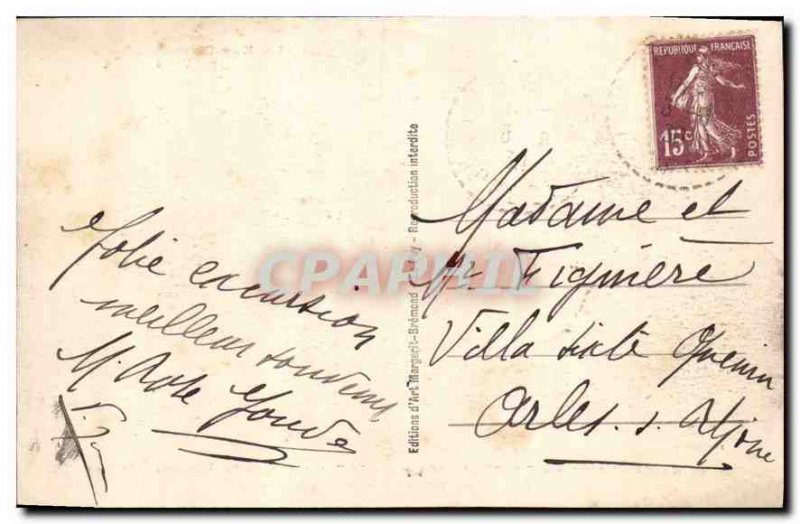 Jolie excursion
meilleur souvenir
M. Rose
Editions d'Art Margerit-Brémond - Reproduction interdite
REPUBLIQUE FRANÇAISE
15c
POSTES
Madame et
Mr Figuière
Villa Sixte Quenin
Arles. s. Rhône
CPAPHIL